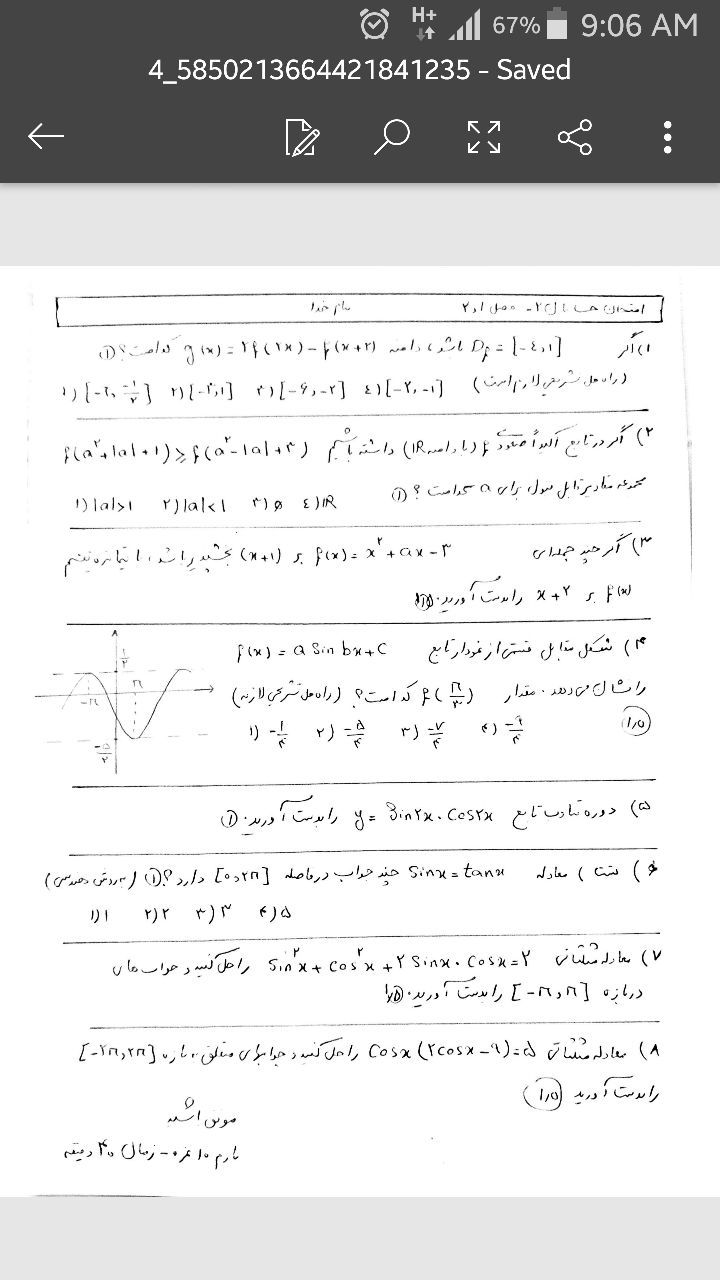 H+ 67% 9:06 AM
4_5850213664421841235 - Saved
بنام خدا
امتحان حسابان ۲ - فصل ۱و۲
۱) اگر D_f = [-٤,۱] باشد، دامنه g(x) = ۲f(۲x) - f(x+۲) کدامست؟ ①
(راه حل تشریحی لازم است) ۱) [-۲, -۱/۲] ۲) [-۳,۱] ۳) [-۶,-۲] ٤) [-۲,-۱]
۲) اگر در تابع اکیداً صعودی f (با دامنه IR) داشته باشیم f(a²+|a|+۱) ≥ f(a²-|a|+۳)
مجموعه مقادیر قابل قبول برای a کدامست؟ ①
۱) |a|>۱ ۲) |a|<۱ ۳) ∅ ٤) IR
۳) اگر چند جمله‌ای f(x) = x² + ax - ۳ بر (x+۱) بخشپذیر باشد، باقیمانده تقسیم
f(x) بر x+۲ را بدست آورید.
۴) شکل مقابل قسمتی از نمودار تابع f(x) = a Sin bx + C
را نشان می‌دهد. مقدار f(π/۳) کدامست؟ (راه حل تشریحی لازمه)
۱) -۱/۴ ۲) -۵/۴ ۳) -۷/۴ ۴) -۹/۴
۱٫۵
۱/۲
-π π
-۵/۲
۵) دوره تناوب تابع y = Sin۲x . Cos۲x را بدست آورید. ①
۶) تست) معادله Sinx = tanx چند جواب در فاصله [۰,۲π] دارد؟ ① (به روش هندسی)
۱) ۱ ۲) ۲ ۳) ۳ ۴) ۵
۷) معادله مثلثاتی Sin²x + cos²x + ۲ Sinx . Cosx = ۲ را حل کنید و جواب های
در بازه [-π,π] را بدست آورید.
۸) معادله مثلثاتی Cosx (۲cosx - ۹) = ۵ را حل کنید و جوابهای متعلق به بازه [-۲π,۲π]
را بدست آورید ۱٫۵
موفق باشید
بارم ۱۰ نمره - زمان ۴۰ دقیقه